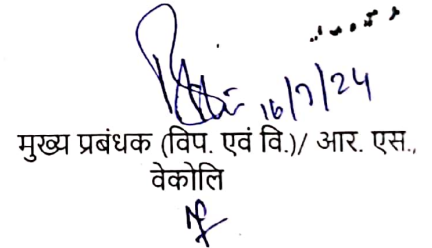 16/7/24
मुख्य प्रबंधक (विप. एवं वि.)/ आर. एस.,
वेकोलि